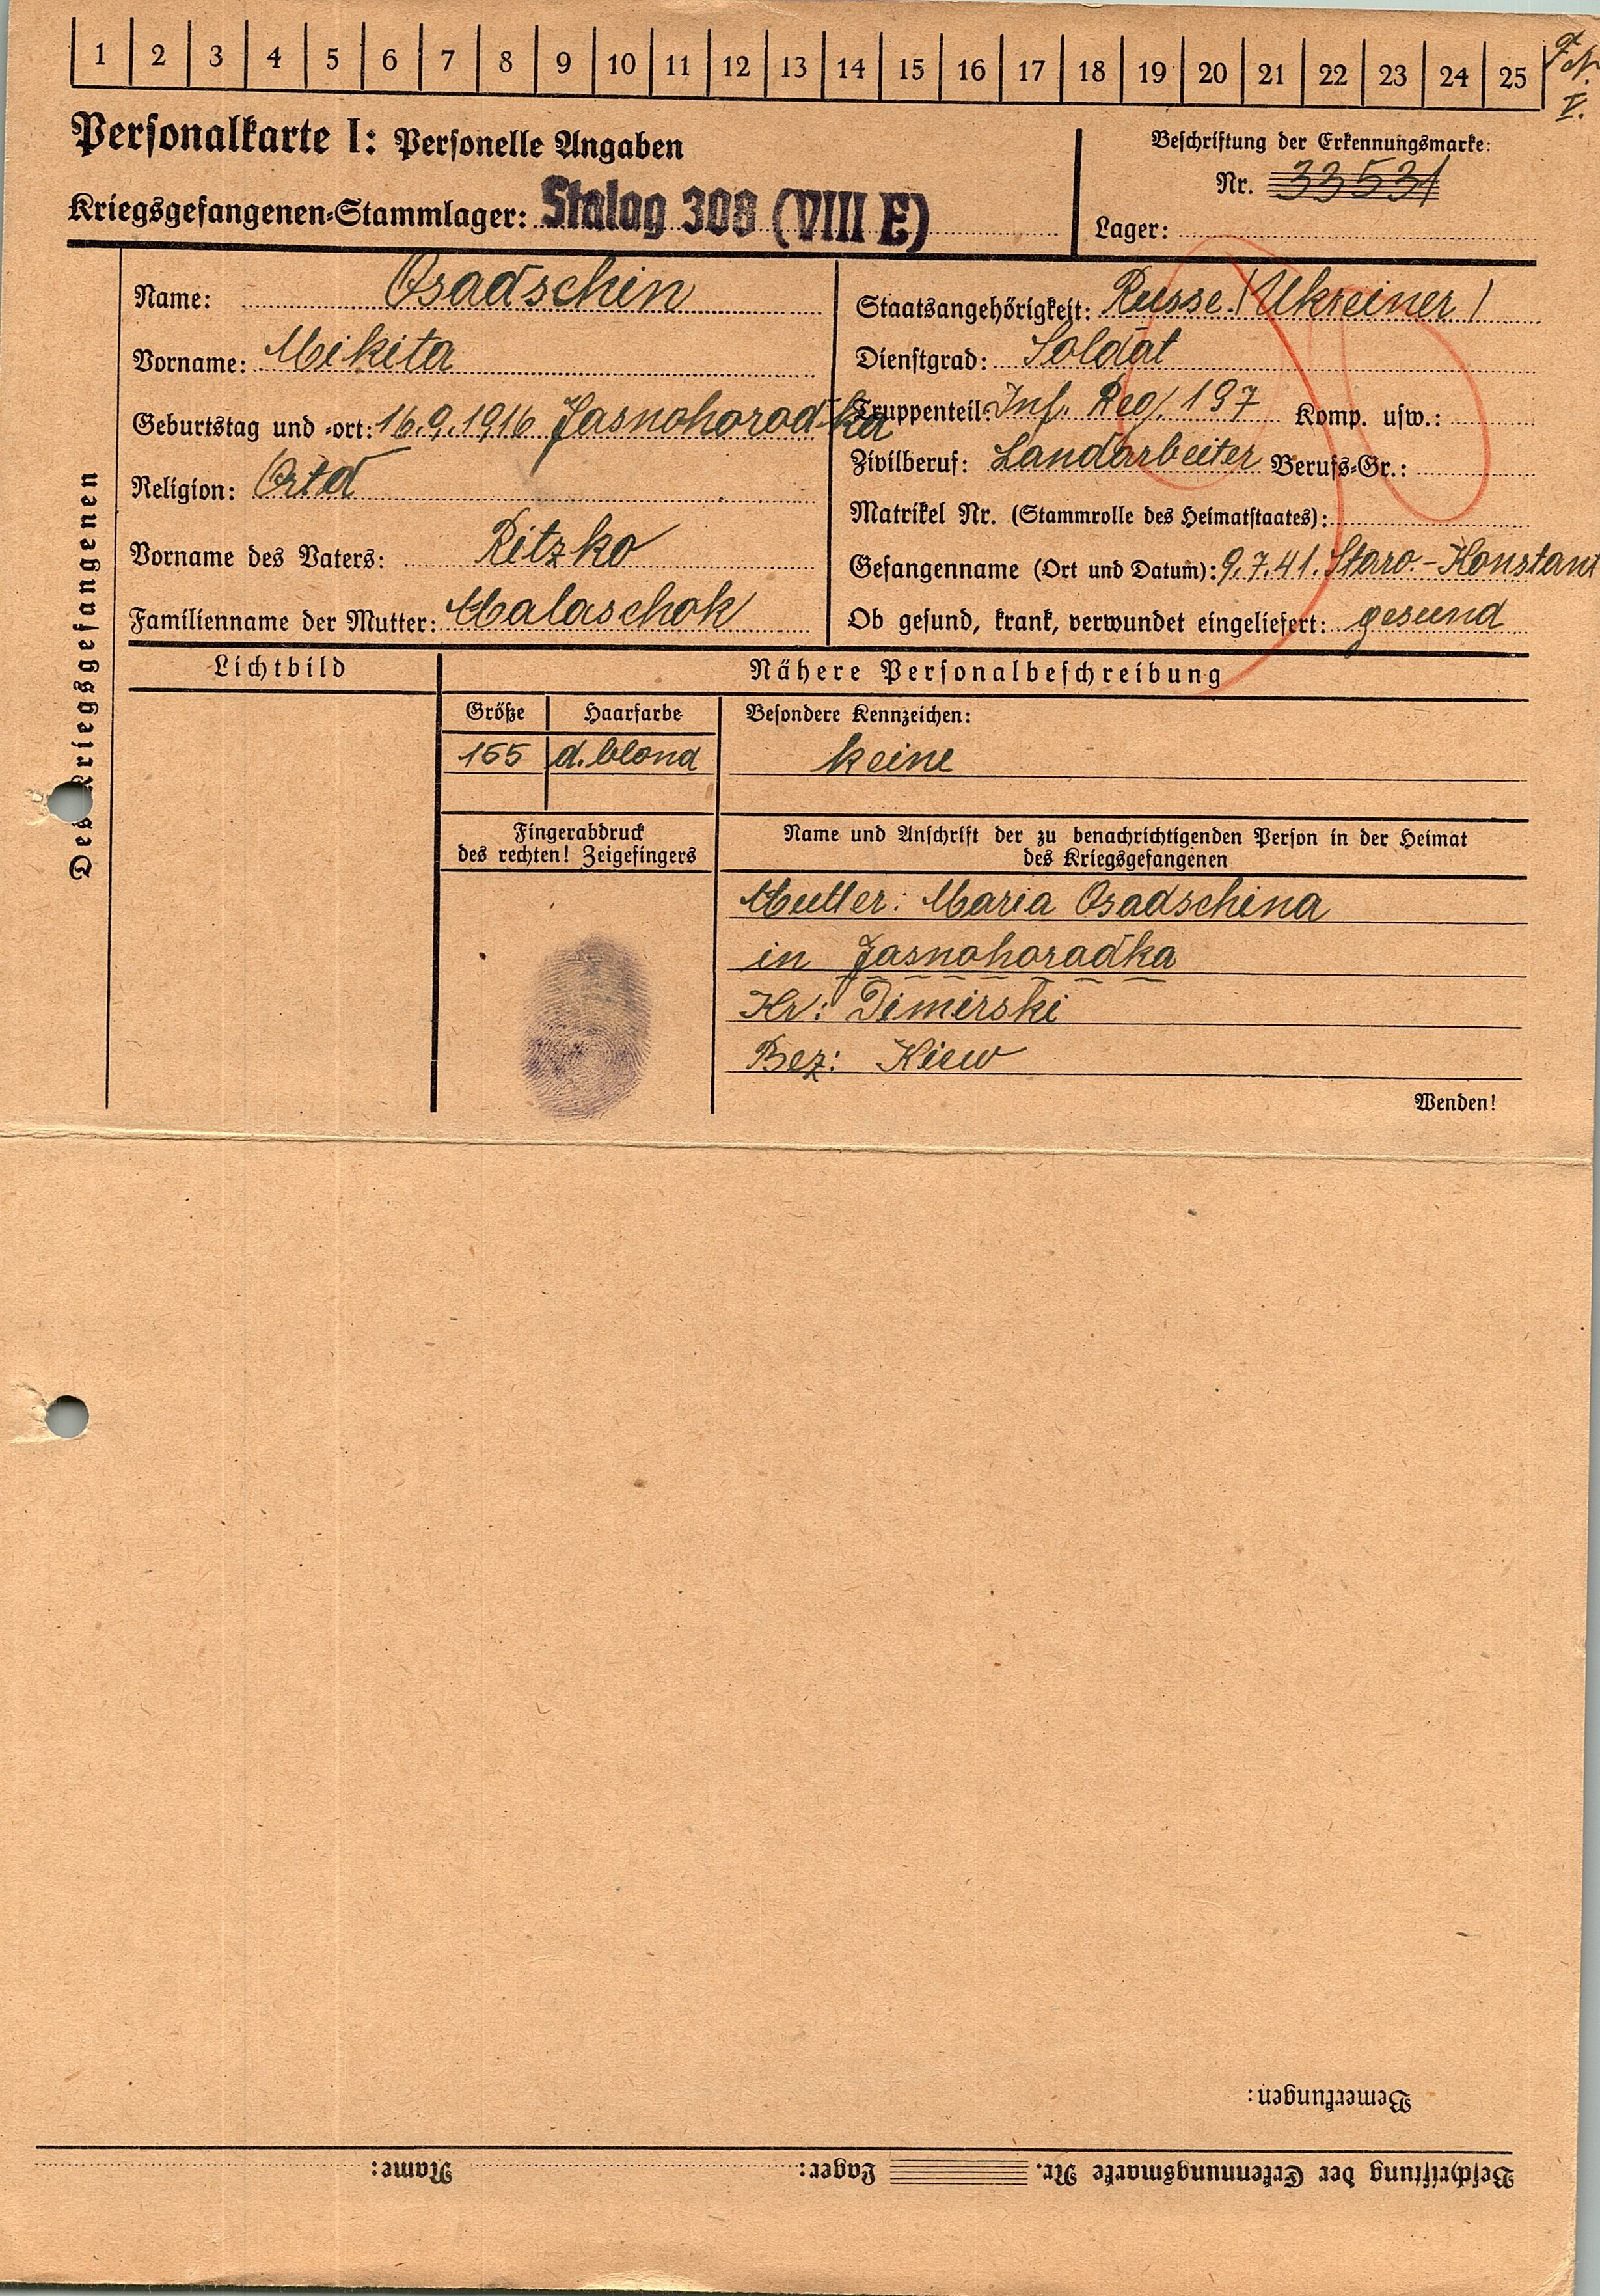 1 2 3 4 5 6 7 8 9 10 11 12 13 14 15 16 17 18 19 20 21 22 23 24 25
V.
Personalkarte I: Personelle Angaben
Beschriftung der Erkennungsmarke:
Nr. 33531
Kriegsgefangenen-Stammlager: Stalag 308 (VIII E)
Lager:
Des Kriegsgefangenen
Name: Osadschin
Vorname: Mikita
Geburtstag und -ort: 16.9.1916 Jasnohorodka
Religion: Ortd
Vorname des Vaters: Ritzko
Familienname der Mutter: Malaschok
Staatsangehörigkeit: Russe (Ukreiner)
Dienstgrad: Soldat
Truppenteil: Inf. Reg. 197 Komp. usw.:
Zivilberuf: Landarbeiter Berufs-Gr.:
Matrikel Nr. (Stammrolle des Heimatstaates):
Gefangenname (Ort und Datum): 9.7.41. Staro-Konstant
Ob gesund, krank, verwundet eingeliefert: gesund
Lichtbild
Nähere Personalbeschreibung
Größe Haarfarbe
165 d. blond
Besondere Kennzeichen:
keine
Fingerabdruck
des rechten! Zeigefingers
Name und Anschrift der zu benachrichtigenden Person in der Heimat
des Kriegsgefangenen
Mutter: Maria Osadschina
in Jasnohoradka
Kr: Dimirski
Bez: Kiew
Wenden!
Bemerkungen:
Beschriftung der Erkennungsmarke Nr. Lager: Name: